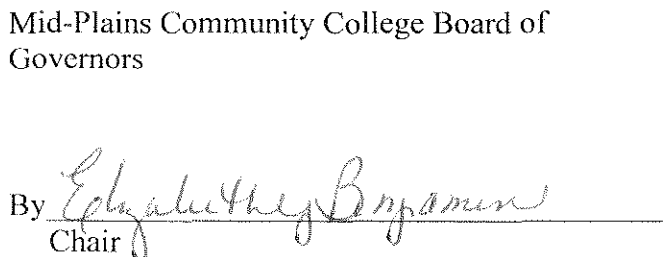 Mid-Plains Community College Board of
Governors
By Elizabeth Benjamin
Chair